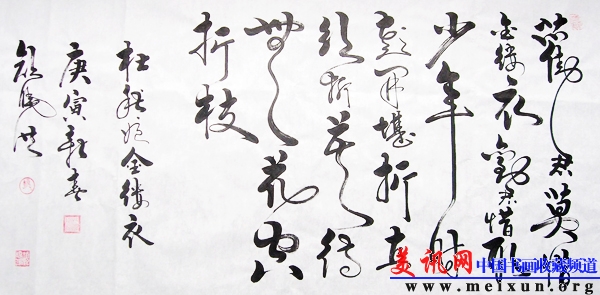 勸君莫惜
金缕衣勸君惜取
少年时
花开堪折直
须折莫待
無花空
折枝
杜秋娘金缕衣
庚寅新春
美讯网中国书画收藏频道
www.meixun.org